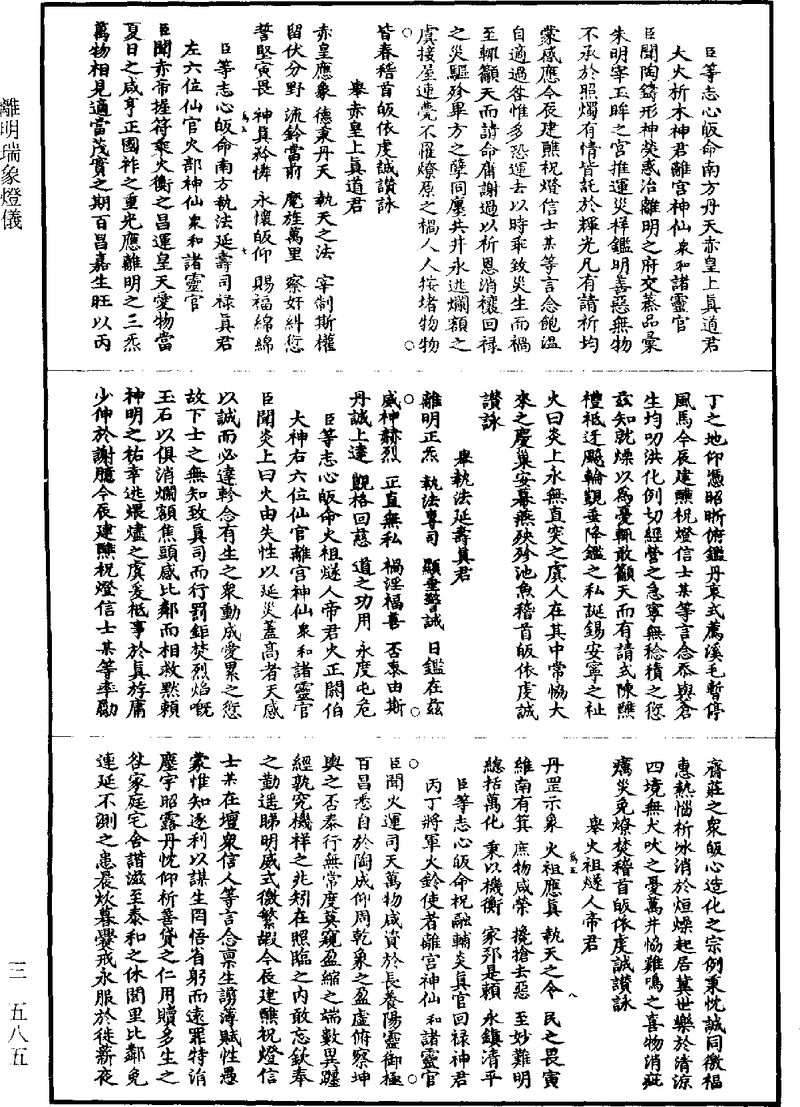 離明瑞象燈儀
臣等志心皈命南方丹天赤皇上真道君
大火析木神君離宮神仙衆和諸靈官
臣聞陶鑄形神熒惑治離明之府交蒸品彙
朱明宰玉眸之宮推運災祥鑑明善惡無物
不承於照燭有情皆託於輝光凡有請祈均
蒙感應今辰建醮祝燈信士某等言念飽溫
自適過咎惟多恐運去以時乖致災生而禍
至輒籲天而請命庸謝過以祈恩消禳回祿
之災驅殄畢方之孽同廛共井永逃爛額之
虞接屋連甍不罹燎原之禍人人按堵物物
皆春稽首皈依虔誠讚詠
舉赤皇上真道君
赤皇應象 德秉丹天 執天之法 宰制斯權
留伏分野 流鈴當前 麾旌萬里 察奸糾愆
誓堅寅畏 神真矜憐 永懷皈仰 賜福綿綿
臣等志心皈命南方執法延壽司祿真君
左六位仙官火部神仙衆和諸靈官
臣聞赤帝握符乘火衡之昌運皇天愛物當
夏日之咸亨正國祚之重光應離明之三炁
萬物相見適當茂實之期百昌嘉生旺以丙
丁之地仰憑昭晰俯鑑丹衷式薦溪毛暫停
風馬今辰建醮祝燈信士某等言念忝與倉
生均叨洪化例切經營之急寧無稔積之愆
茲知就燥以為憂輒敢籲天而有請式陳醮
禮祗迓飈輪觀垂降鑑之私誕錫安寧之祉
火曰炎上永無直突之虞人在其中常恊大
來之慶巢安幕燕殃殄池魚稽首皈依虔誠
讚詠
舉執法延壽真君
離明正炁 執法專司 顯垂警誡 日鑑在茲
威神赫烈 正直無私 禍淫福善 否泰由斯
丹誠上達 覬格回慈 道之功用 永度屯危
臣等志心皈命火祖燧人帝君火正閼伯
大神右六位仙官離宮神仙衆和諸靈官
臣聞炎上曰火由失性以延災蓋高者天感
以誠而必達軫念有生之衆動成愛累之愆
故下士之無知致真司而行罰鉅焚烈焰嘅
玉石以俱消爛額焦頭感比鄰而相救默賴
神明之祐幸逃煨燼之虞爰柢事於真游庸
少伸於謝臆今辰建醮祝燈信士某等率勵
齋莊之衆皈心造化之宗例秉忱誠同徼福
惠熱惱祈冰消於烜燥起居冀世樂於清涼
四境無犬吠之憂萬井恊雞鳴之喜物消疵
癘災免燎焚稽首皈依虔誠讚詠
舉火祖燧人帝君
丹罡示象 火祖應真 執天之令 民之畏寅
維南有箕 庶物咸榮 攙搶去惡 至妙難明
總括萬化 秉以機衡 家邦是賴 永鎮清平
臣等志心皈命祝融輔炎真官回祿神君
丙丁將軍火鈴使者離宮神仙和諸靈官
臣聞火運司天萬物咸資於長養陽靈御極
百昌悉自於陶成仰周乾象之盈虛俯察坤
輿之否泰行無常度莫窺盈縮之端數異躔
經孰究機祥之兆矧在照臨之內敢忘欽奉
之勤遥睇明威式徼繁嘏今辰建醮祝燈信
士某在壇衆信人等言念禀生謭薄賦性愚
蒙惟知逐利以謀生罔悟省躬而遠罪特消
塵宇昭露丹忱仰祈善貸之仁用贖多生之
咎家庭宅舍諧滋至泰和之休閭里比鄰免
連延不測之患晨炊暮爨戒永服於徙薪夜
三 五八五